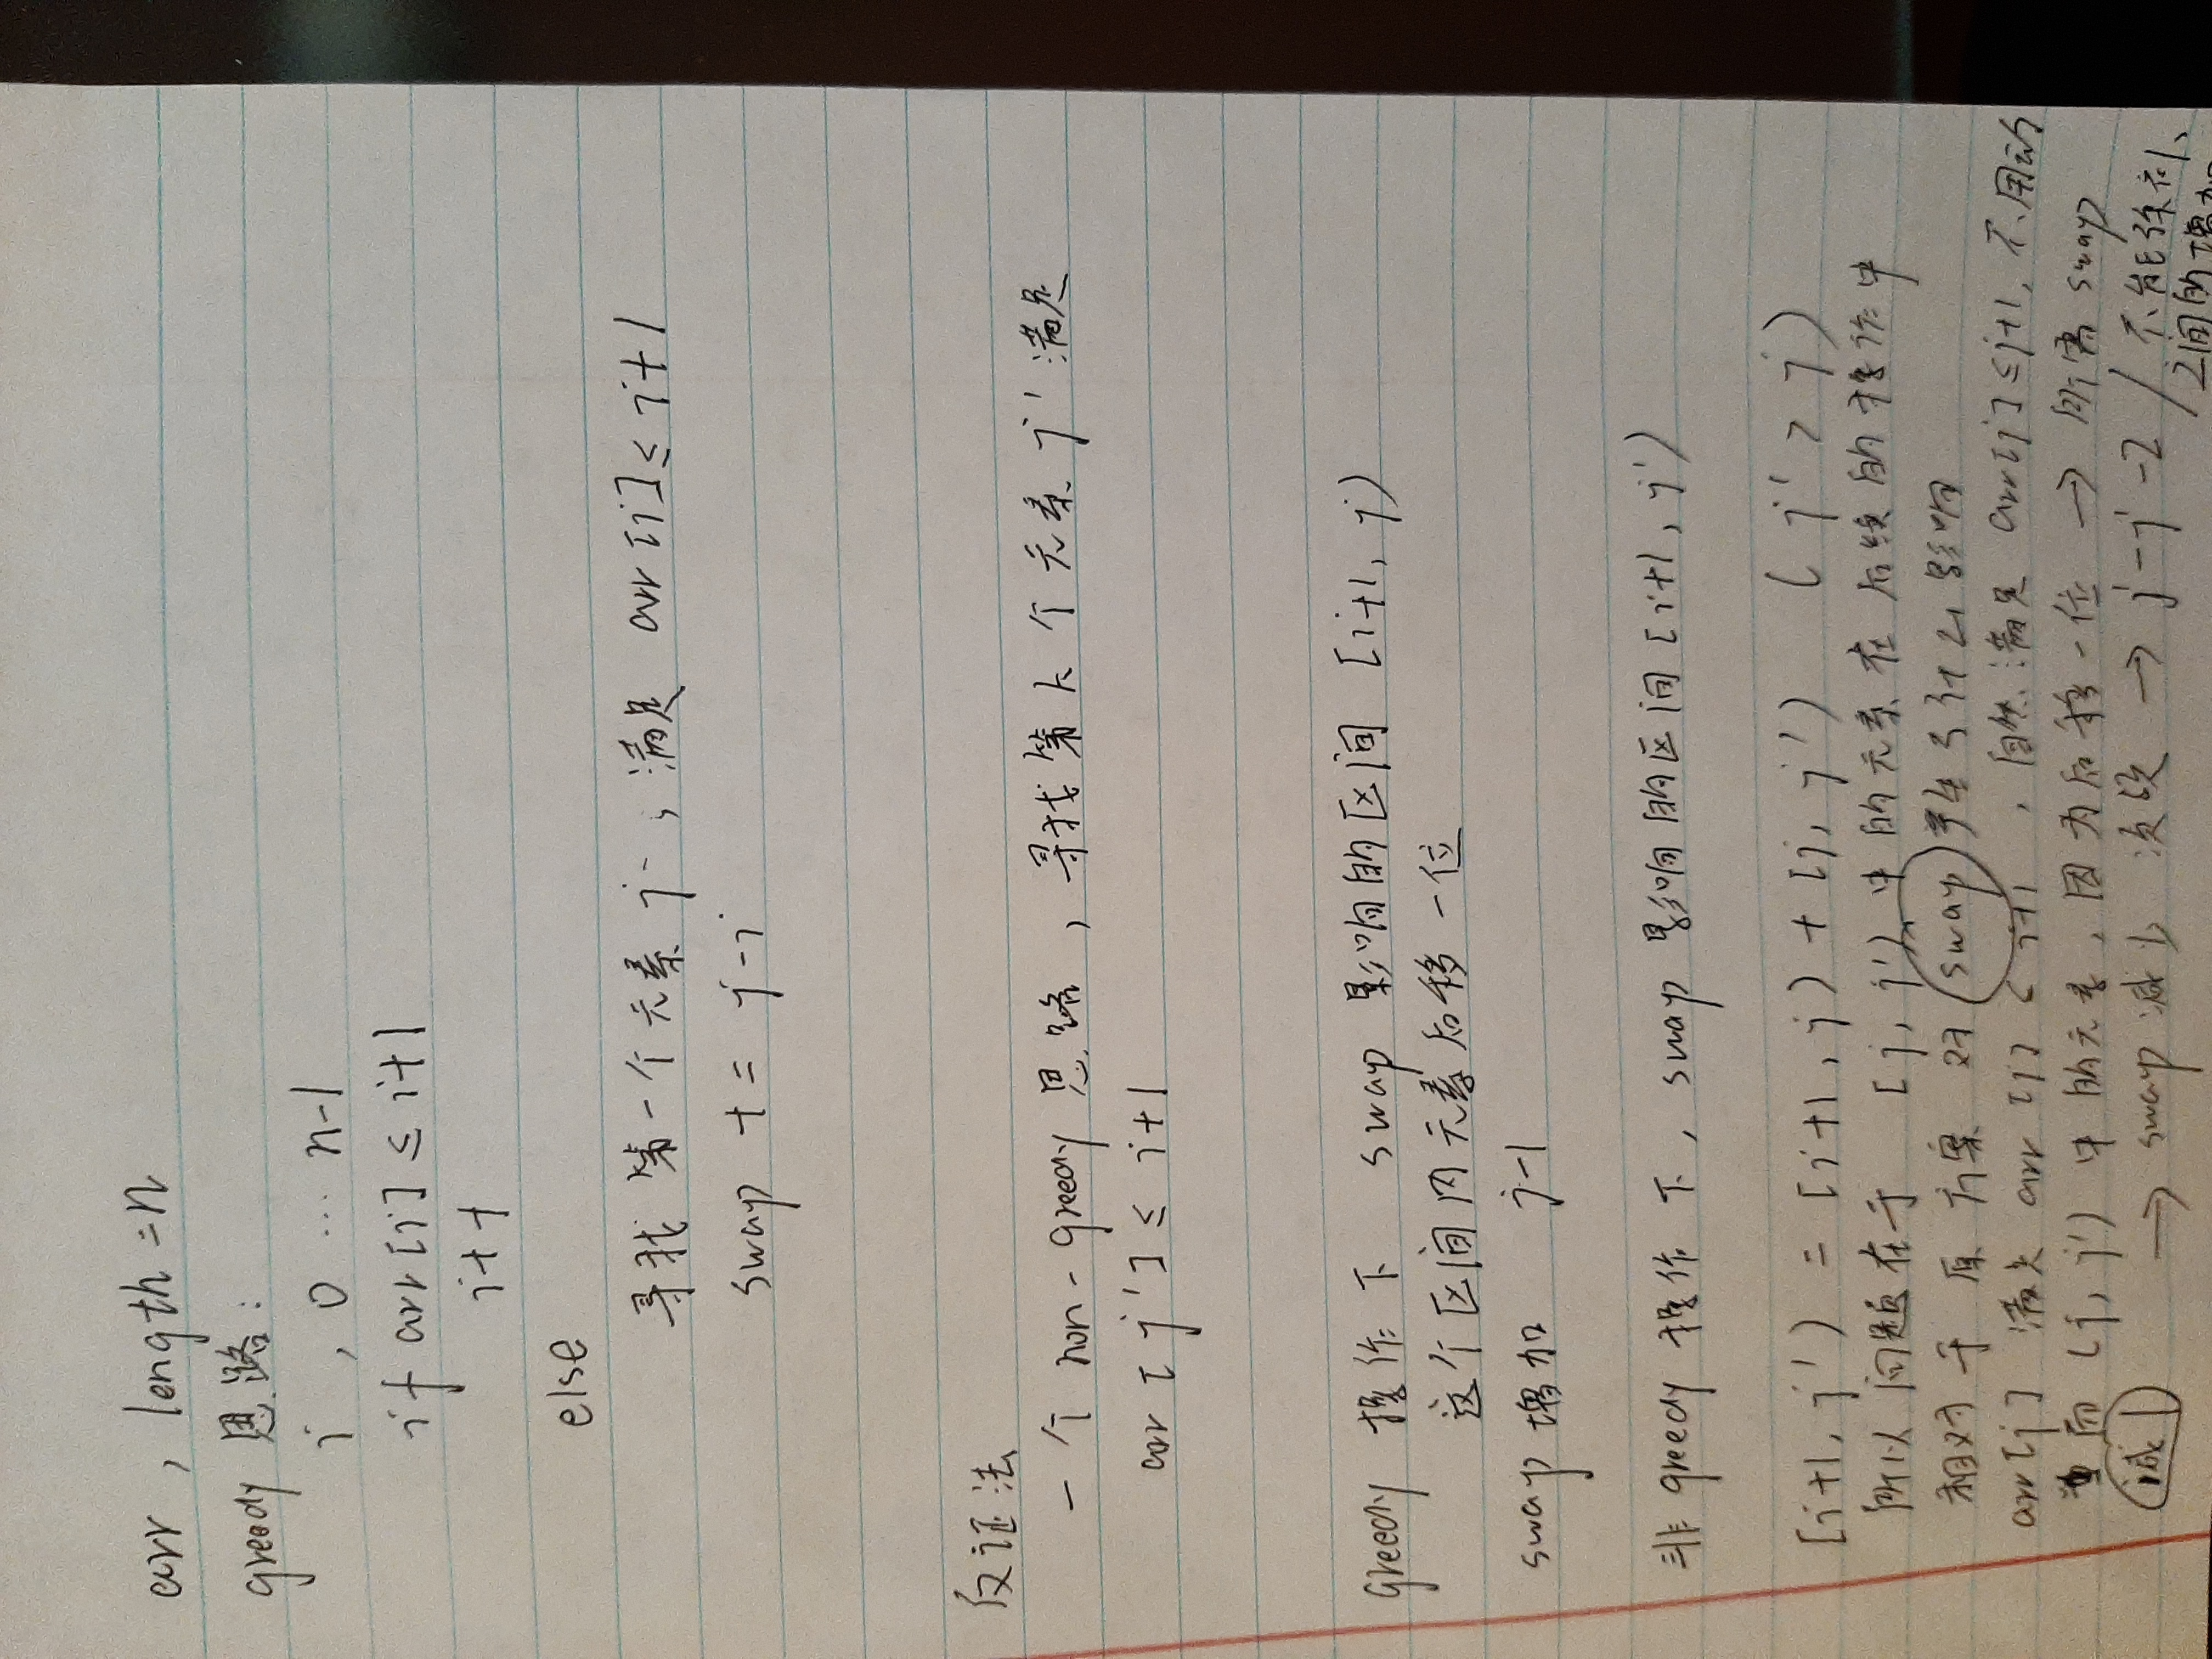 arr , length = n
greedy 思路:
i , 0 ... n-1
if arr[i] ≤ i+1
i++
else
寻找 第一个元素 j , 满足 arr[j] ≤ i+1
swap += j-i
反证法
一个 non-greedy 思路 , 寻找第 k 个元素 j' 满足
arr[j'] ≤ i+1
greedy 操作下 swap 影响的区间 [i+1, j)
这个区间内元素后移一位
swap 增加 j-1
非 greedy 操作下, swap 影响的区间 [i+1, j')
[i+1, j') = [i+1, j) + [j, j') ( j' > j )
所以问题在于 [j, j') 中的元素在后续的操作中
相对于原方案对 swap 产生了什么影响
arr[j] 满足 arr[j] ≤ i+1 , 自然满足 arr[j] ≤ j+1, 不用动
而 (j, j') 中的元素, 因为后移一位 → 所需 swap
减1 → swap 减少 次数 → j-j-2 / 不能弥补
之间的增加